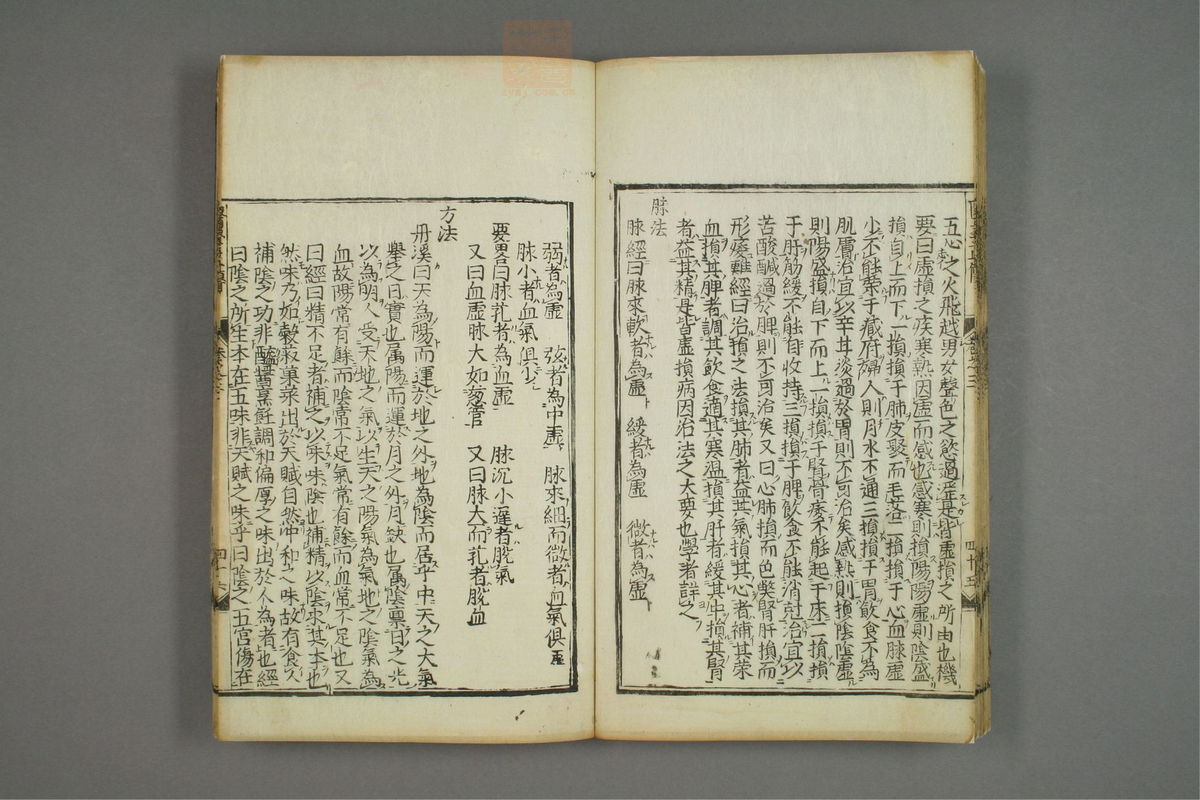 五心之火飛越男女聲色之慾過淫是皆虛損之所由也機
要曰虛損之疾寒熱因虛而感也感寒則損陽陽虛則陰盛
損自上而下一損損于肺皮聚而毛落二損損于心血脉虛
少不能榮于臓府婦人則月水不通三損損于胃飲食不為
肌膚治宜以辛甘淡過於胃則不可治矣感熱則損陰陰虛
則陽盛損自下而上一損損于腎骨痿不能起于床二損損
于肝筋緩不能自收持三損損于脾飲食不能消尅治宜以
苦酸鹹過於脾則不可治矣又曰心肺損而色獘腎肝損而
形痿難經曰治損之法損其肺者益其氣損其心者補其榮
血損其脾者調其飲食適其寒温損其肝者緩其中損其腎
者益其精是皆虛損病因治法之大要也學者詳之
脉法
脉經曰脉來軟者為虛　緩者為虛　微者為虛
弱者為虛　弦者為中虛　脉來細而微者血氣俱虛
脉小者血氣俱少
要畧曰脉芤者為血虛　脉沉小遲者脫氣
又曰血虛脉大如葱管　又曰脉大而芤者脫血
方法
丹溪曰天為陽而運於地之外地為陰而居乎中天之大氣
舉之日實也属陽而運於月之外月缺也属陰稟日之光
以為明人受天地之氣以生天之陽氣為氣地之陰氣為
血故陽常有餘而陰常不足氣常有餘而血常不足也又
曰經曰精不足者補之以味味陰也補精以陰求其本也
然味乃如穀菽菓菜出於天賦自然冲和之味故有食久
補陰之功非醯醬烹飪調和偏厚之味出於人為者也經
曰陰之所生本在五味非天賦之味乎曰陰之五宮傷在
四十五